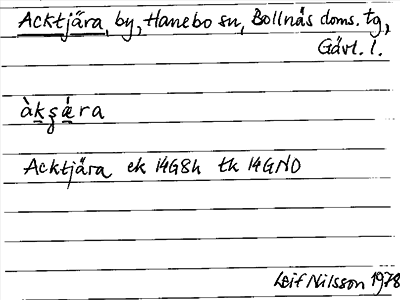 Acktjära, by, Hanebo sn, Bollnäs doms. tg,
Gävl. l.
àkʂǽra
Acktjära ek 14G8h tk 14GNO
Leif Nilsson 1978